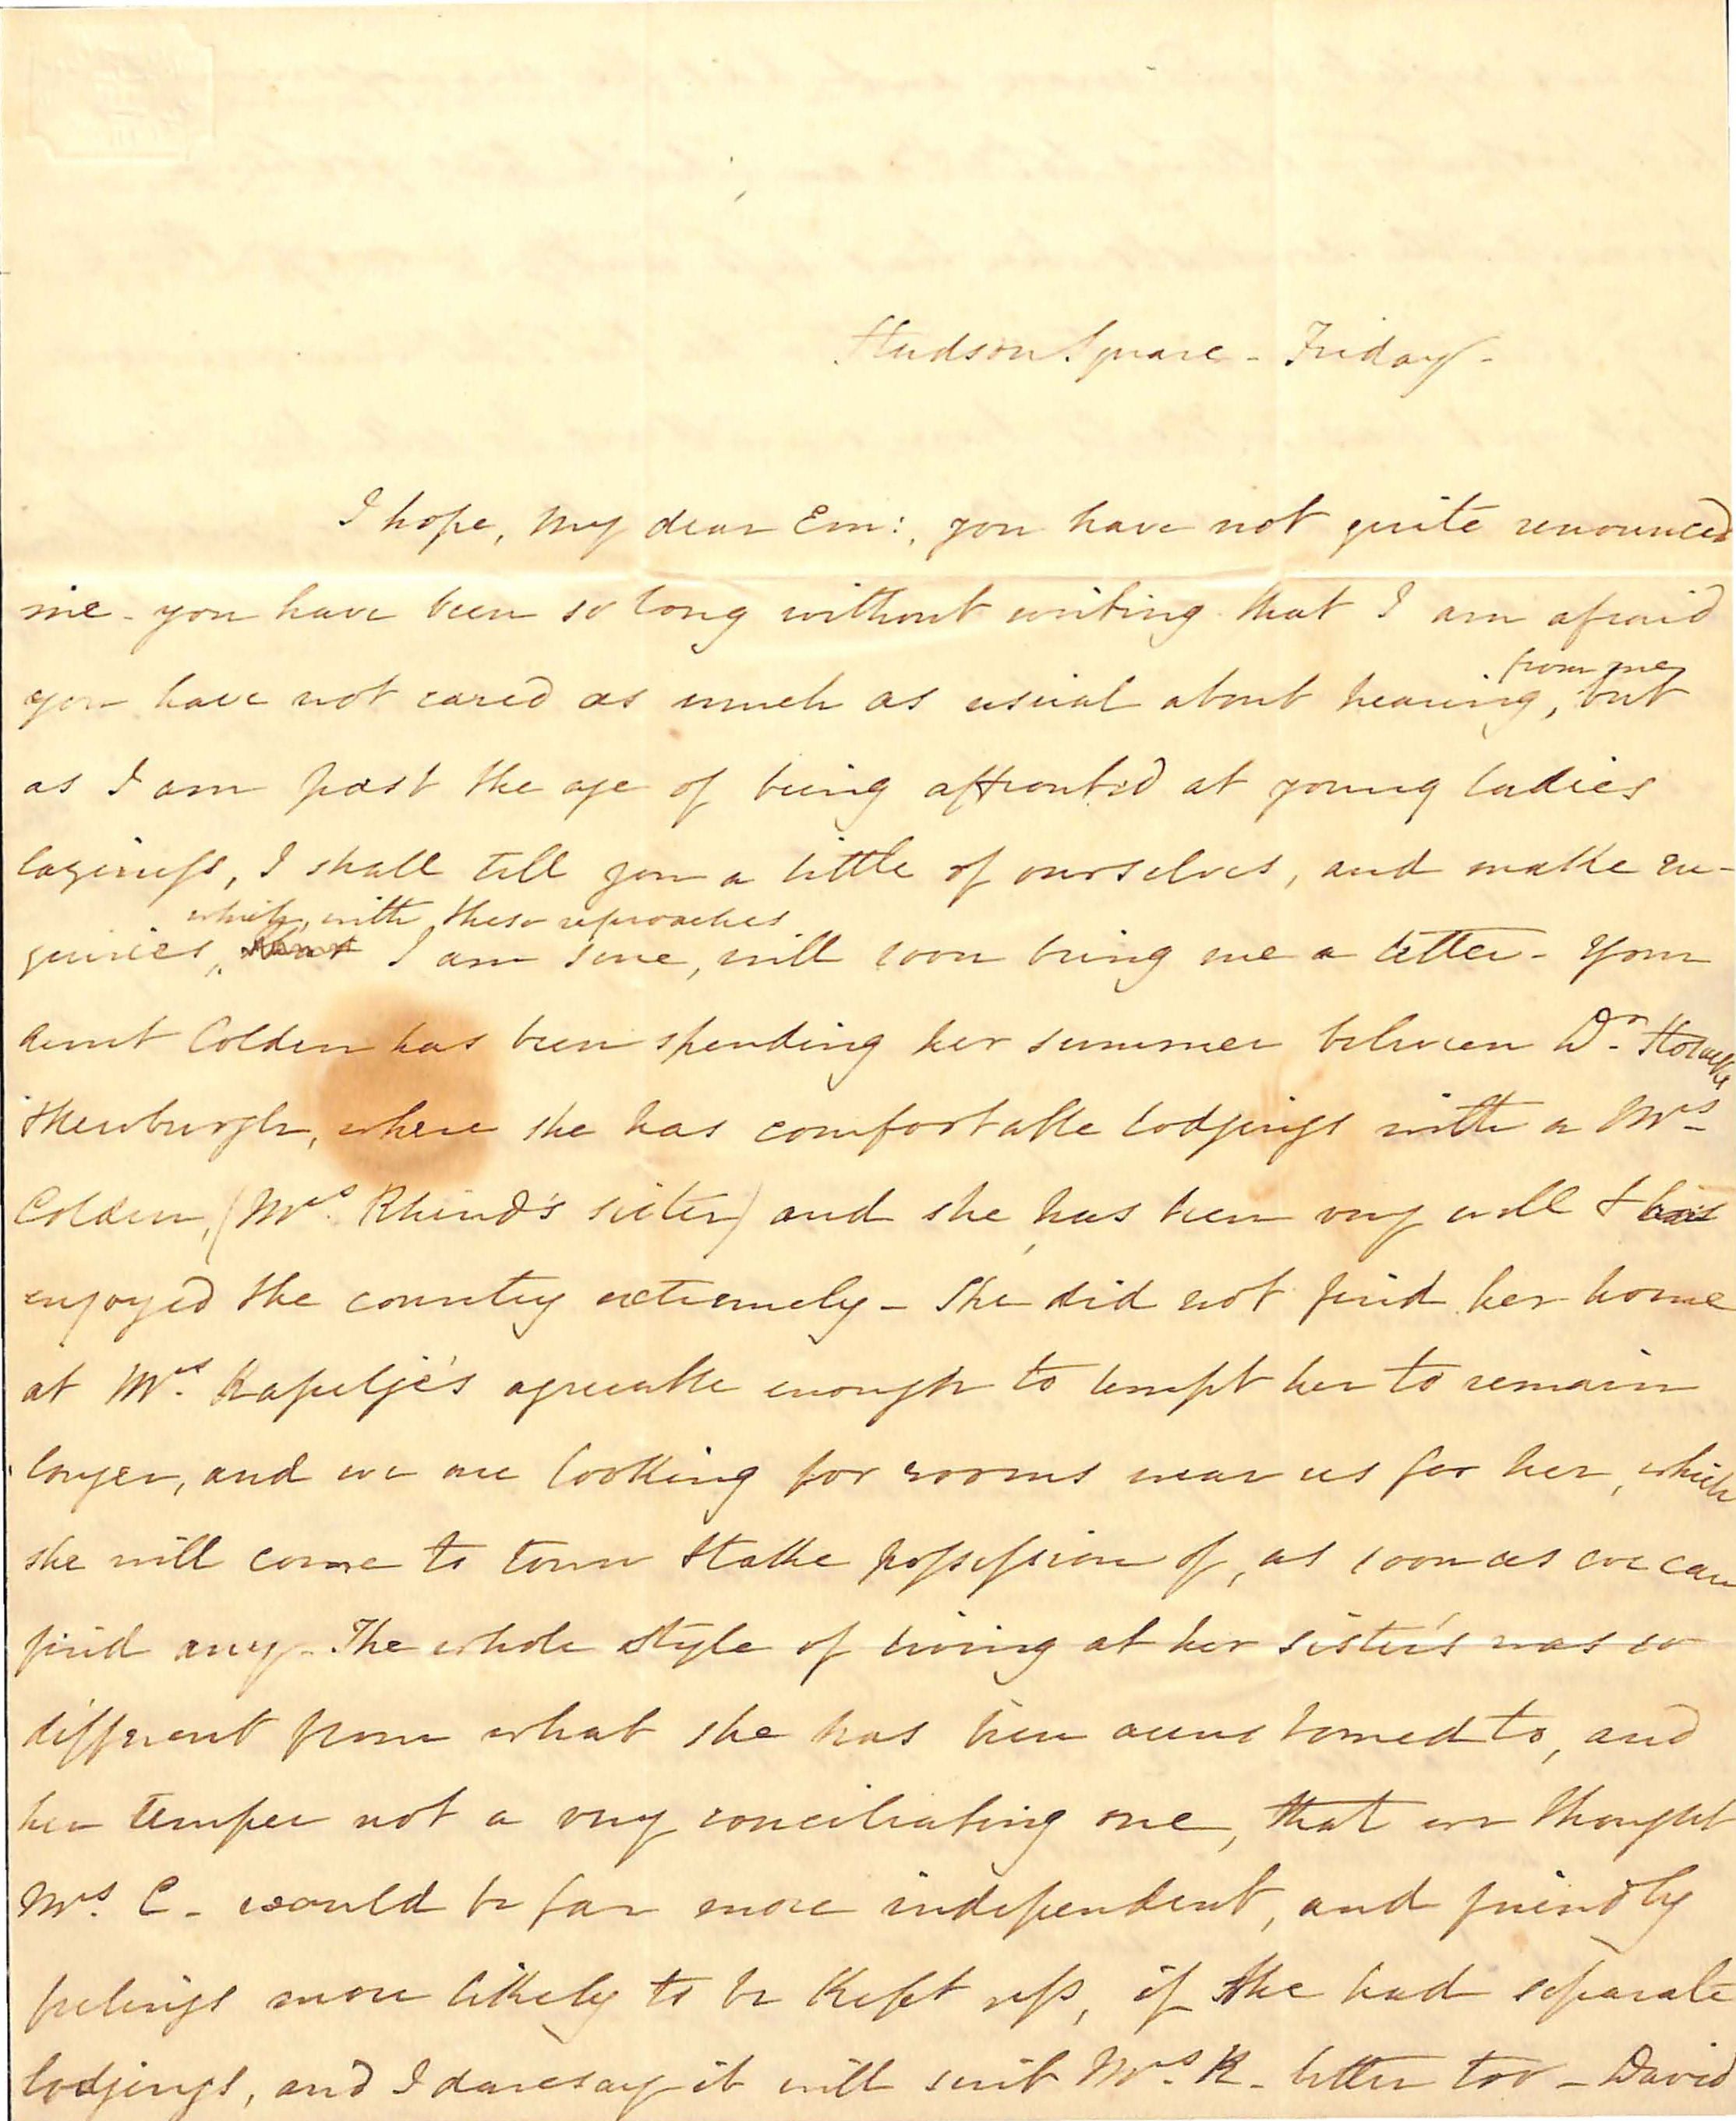 Hudson Square - Friday -
I hope, my dear Em:, you have not quite renounced
me - you have been so long without writing that I am afraid
from me
you have not cared as much as usual about hearing, but
as I am past the age of being affronted at young ladies
laziness, I shall tell you a little of ourselves, and make en-
which, with these reproaches
quiries, I am sure, will soon bring me a letter - Your
Aunt Colden has been spending her summer between Dr. Hosack's
& Newburgh, where she has comfortable lodgings with a Mrs.
Colden, (Mrs. Rhind's sister) and she has been very well & has
enjoyed the country extremely - She did not find her home
at Mrs. Rapelje's agreeable enough to tempt her to remain
longer, and we are looking for rooms near us for her, which
she will come to town & take possession of, as soon as we can
find any - The whole style of living at her sister's was so
different from what she has been accustomed to, and
her temper not a very conciliating one, that we thought
Mrs. C - would be far more independent, and friendly
feelings more likely to be kept up, if she had separate
lodgings, and I daresay it will suit Mrs. R - better too - David